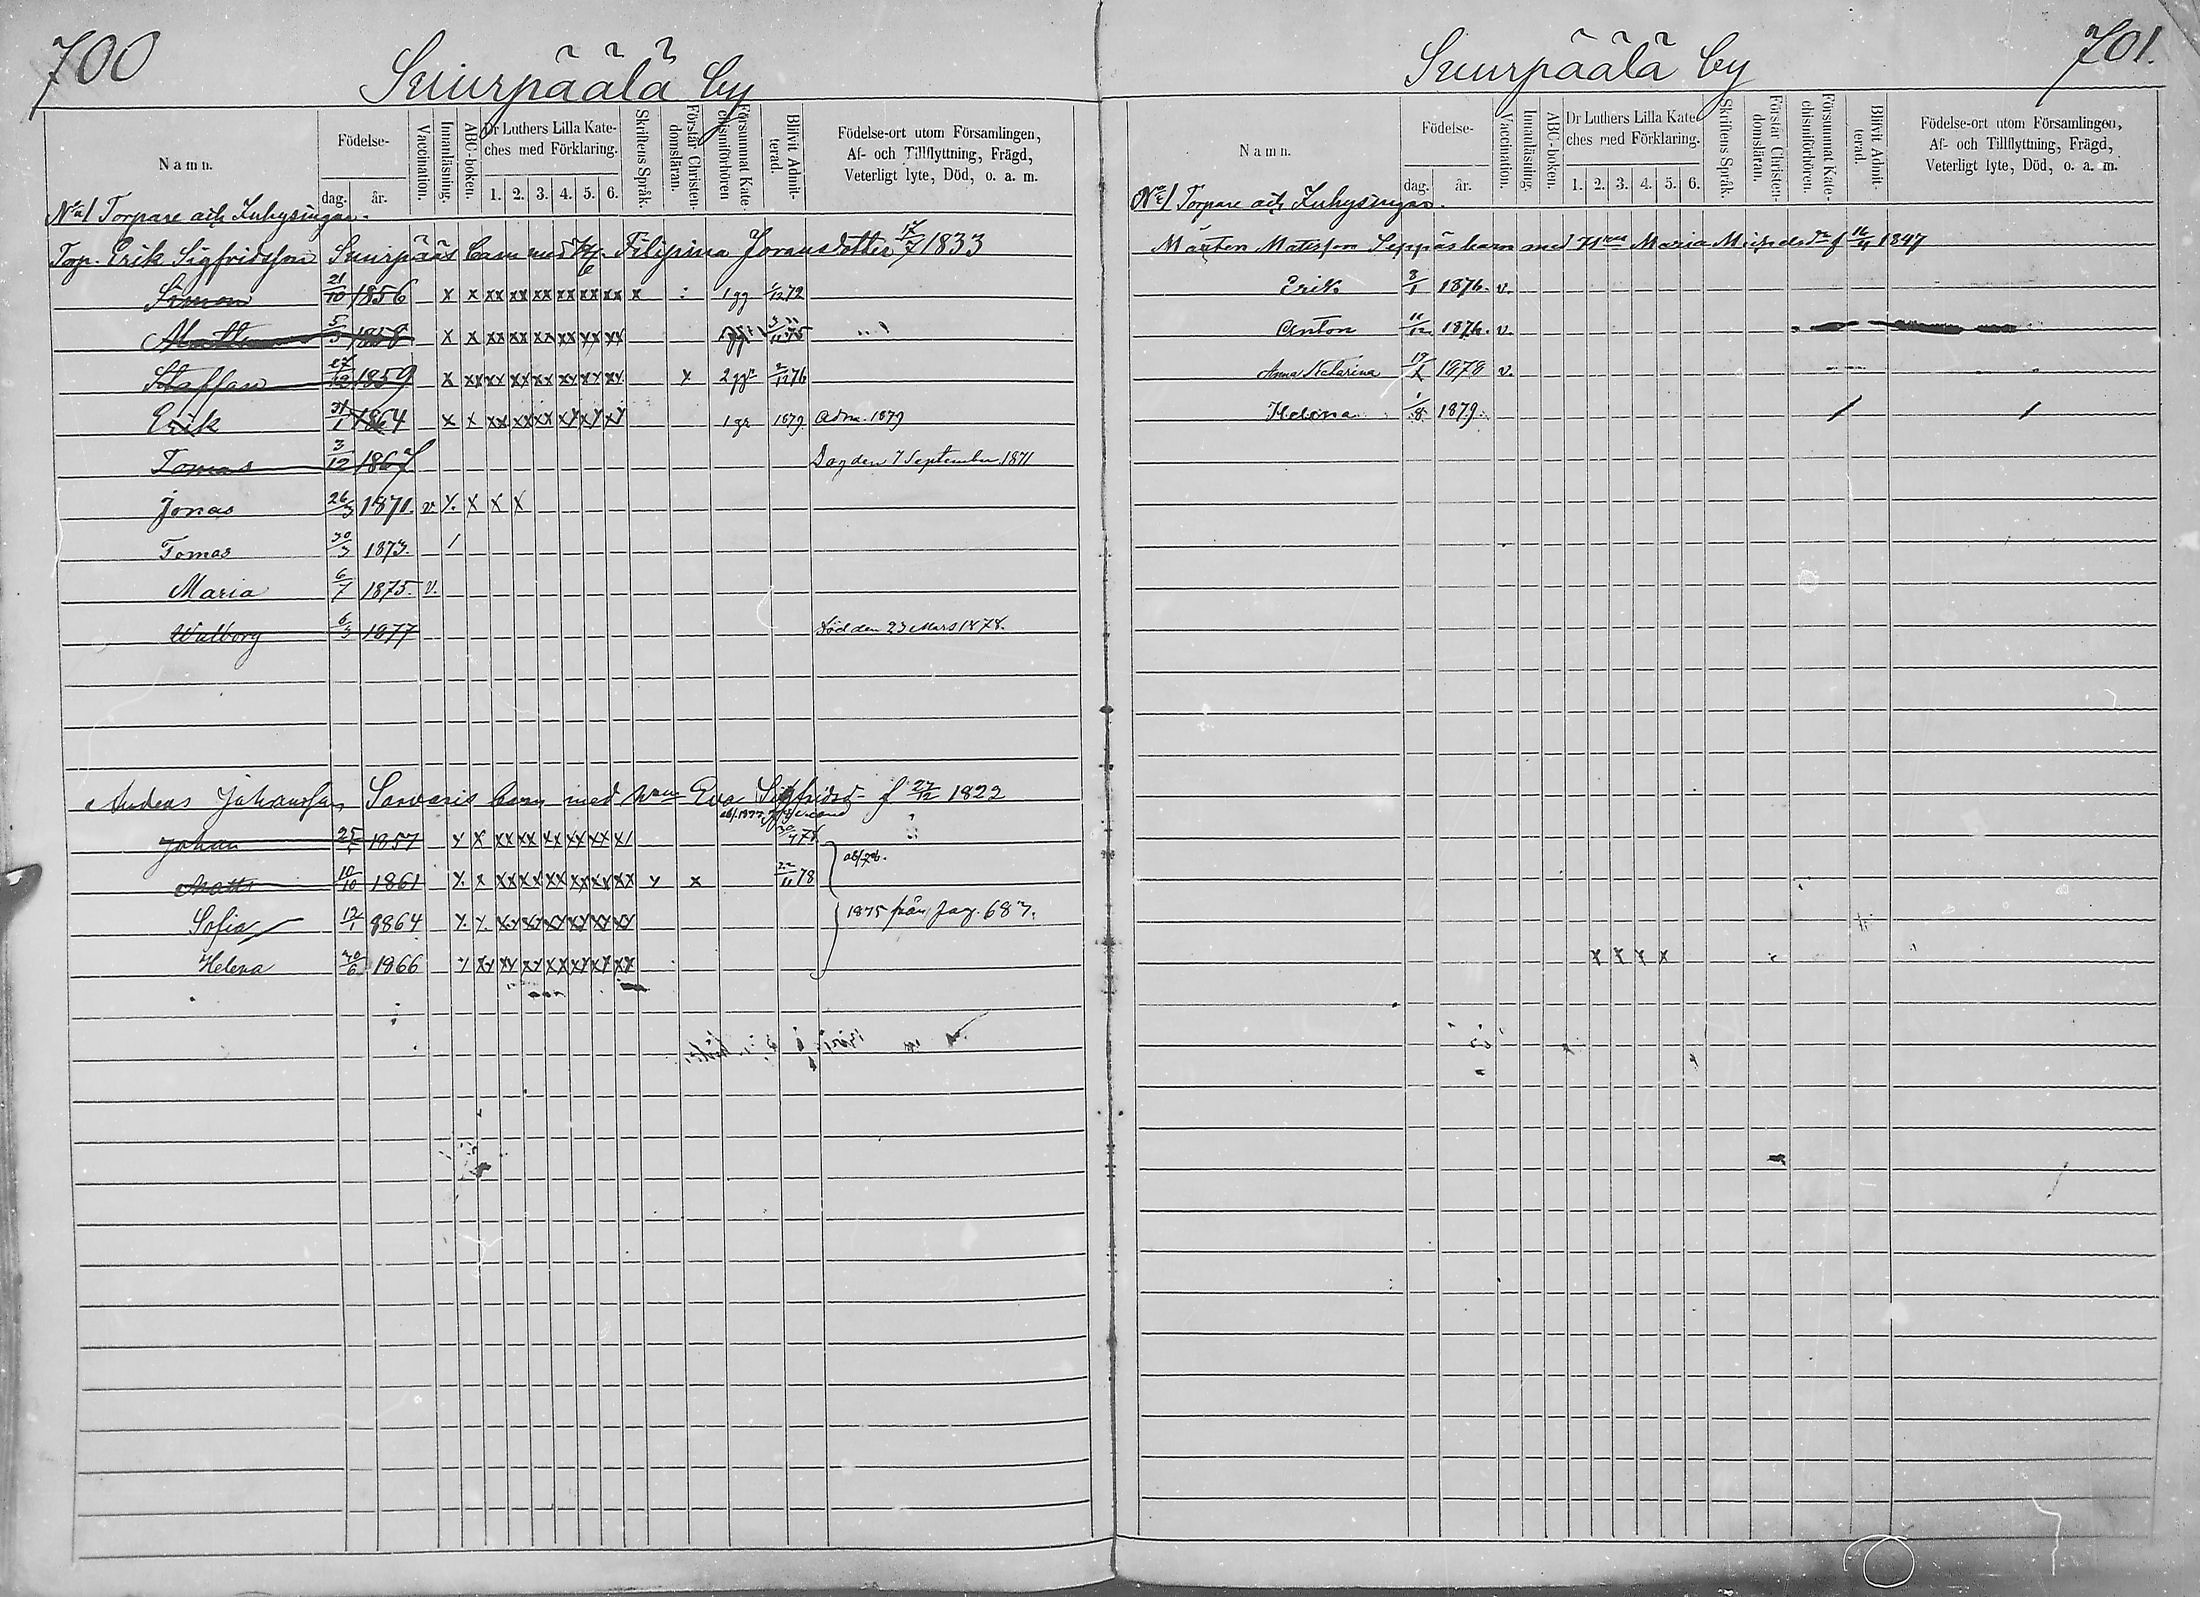 700
Suurpäälä by
Namn.
Födelse-
dag.
år.
Vaccination.
Innanläsning.
ABC-boken.
Dr Luthers Lilla Kate-
ches med Förklaring.
1. 2. 3. 4. 5. 6.
Skriftens Språk.
Förstår Christen-
domsläran.
Försummat Kate-
chismiförhören
Blifvit Admit-
terad.
Födelse-ort utom Församlingen,
Af- och Tillflyttning, Frägd,
Veterligt lyte, Död, o. a. m.
No 1 Torpare och Inhysingar.
Torp. Erik Sigfridsson Suurpääs barn med Filipina Joransdotter 17/7 1833
Simon 21/10 1856 x x xx xx xx xx xx xx x 1 gg 1/12 72
Matts 5/3 1858 x x xx xx xx xx xx xx
Staffan 27/12 1859 x xx xx xx xx xx xx xx x 2 gr 2/12 76
Erik 31/1 1864 x x xx xx xx xx xx xx 1 gr 1879 Adm. 1879
Tomas 3/12 1867 Dog den 7 September 1871
Jonas 26/3 1871. v x. x x x
Tomas 30/3 1873. /
Maria 6/7 1875. v.
Walborg 6/3 1877 Död den 23 Mars 1878.
Anders Johansson Sarvaris barn med hem Eva Sigfridsd. f 27/12 1822
Johan 25/5 1857 x x xx xx xx xx xx x/ 78
Matts 10/10 1861 x. x xx xx xx xx xx xx x x 22/11 78
Sofia 12/1 1864 x. x. xx xx xx xx xx xx 1875 från pag. 683.
Helena 30/6 1866 x xx xx xx xx xx xx xx
701.
Suurpäälä by
Namn.
Födelse-
dag.
år.
Vaccination.
Innanläsning.
ABC-boken.
Dr Luthers Lilla Kate-
ches med Förklaring.
1. 2. 3. 4. 5. 6.
Skriftens Språk.
Förstår Christen-
domsläran.
Försummat Kate-
chismiförhören.
Blifvit Admit-
terad.
Födelse-ort utom Församlingen,
Af- och Tillflyttning, Frägd,
Veterligt lyte, Död, o. a. m.
No 1 Torpare och Inhysingar.
Mårten Matsson Seppäs barn med Maria Michelsdr f 16/11 1847
Erik 8/1 1876. v.
Anton 11/12 1876. v.
Anna Katarina 19/1 1878 v.
Helena 1/8 1879.
x x x x